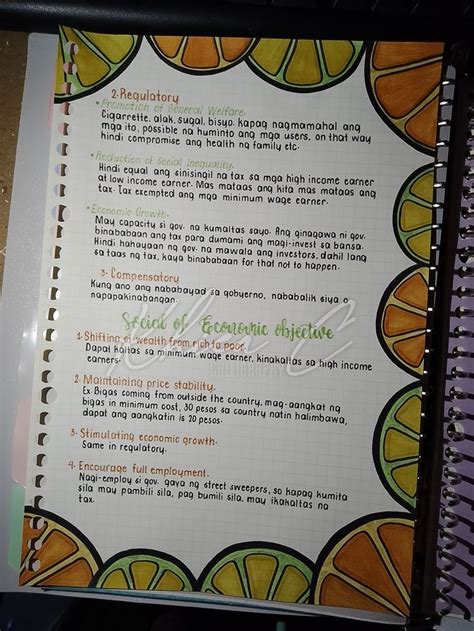 2. Regulatory
• Promotion of General Welfare.
Cigarrette, alak, sugal, bisyo. kapag nagmamahal ang
mga ito, possible na huminto ang mga users, on that way
hindi compromise ang health ng family etc.
• Reduction of Social Inequality.
Hindi equal ang sinisingil na tax sa mga high income earner
at low income earner. Mas mataas ang kita mas mataas ang
tax. Tax exempted ang mga minimum wage earner.
• Economic Growth.
May capacity si gov. na kumaltas sayo. Ang ginagawa ni gov.
binababaan ang tax para dumami ang mag-invest sa bansa.
Hindi hahayaan ng gov. na mawala ang investors, dahil lang
sa taas ng tax, kaya binababaan for that not to happen.
3. Compensatory
Kung ano ang nababayad sa gobyerno, nababalik siya o
napapakinabangan.
Social of Economic objective
1. Shifting of wealth from rich to poor.
Dapat kaltas sa minimum wage earner, kinakaltas sa high income
earners.
2. Maintaining price stability.
Ex. Bigas coming from outside the country, mag-aangkat ng
bigas in minimum cost, 30 pesos sa country natin halimbawa,
dapat ang aangkatin is 20 pesos.
3. Stimulating economic growth.
Same in regulatory.
4. Encourage full employment.
Nagi-employ si gov. gaya ng street sweepers, so kapag kumita
sila may pambili sila, pag bumili sila, may ikakaltas na
tax.